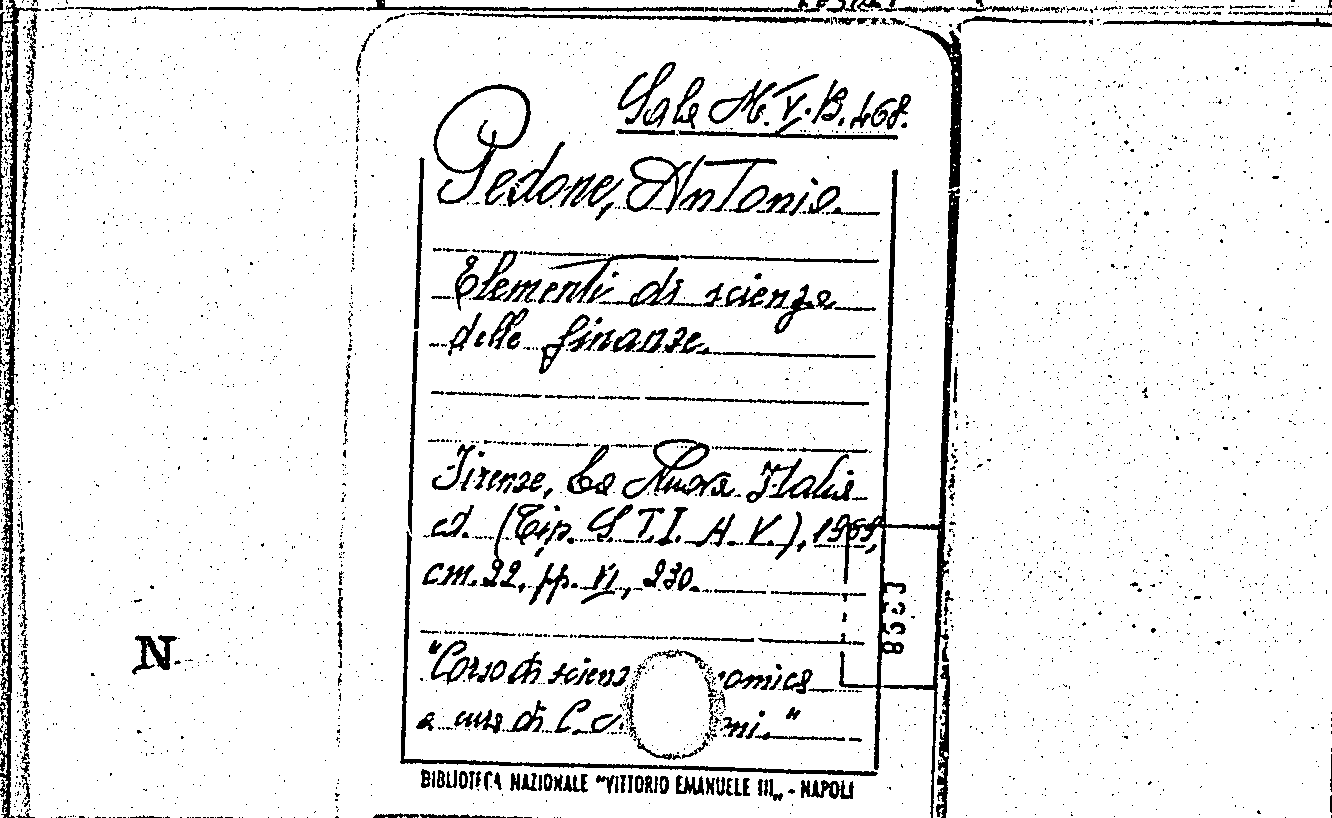 Sala M.V.B.468.
Pedone, Antonio.
Elementi di scienza
delle finanze.
Firenze, La Nuova Italia
ed. (Tip. S.T.I.A.V.), 1969,
cm. 22, pp. VI, 230.
"Corso di scienz omica
a cura di C. mi."
BIBLIOTECA NAZIONALE "VITTORIO EMANUELE III„ - NAPOLI
N